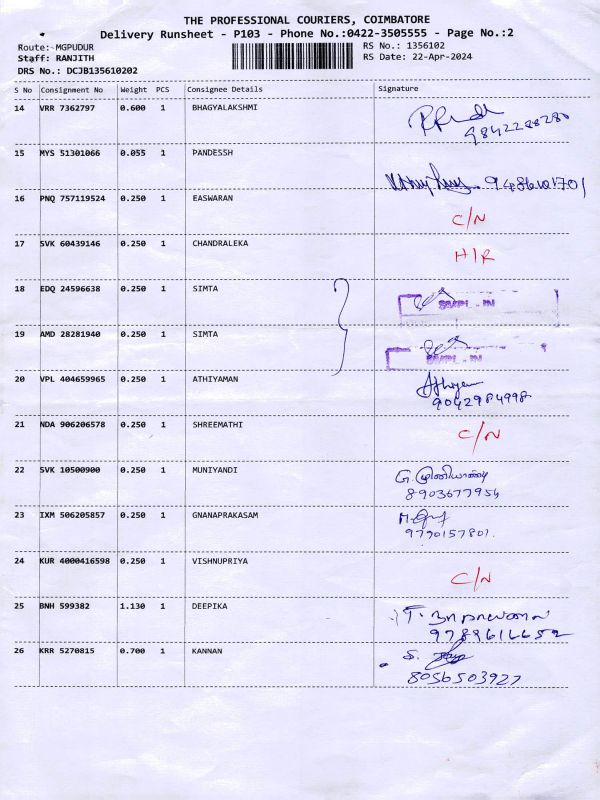 THE PROFESSIONAL COURIERS, COIMBATORE
Delivery Runsheet - P103 - Phone No.:0422-3505555 - Page No.:2
Route: MGPUDUR RS No.: 1356102
Staff: RANJITH RS Date: 22-Apr-2024
DRS No.: DCJB135610202
S No Consignment No Weight PCS Consignee Details Signature
14 VRR 7362797 0.600 1 BHAGYALAKSHMI
9842288280
15 MYS 51301066 0.055 1 PANDESSH
16 PNQ 757119524 0.250 1 EASWARAN C/N
17 SVK 60439146 0.250 1 CHANDRALEKA H/R
18 EDQ 24596638 0.250 1 SIMTA
19 AMD 28281940 0.250 1 SIMTA
20 VPL 404659965 0.250 1 ATHIYAMAN
9042984998
21 NDA 906206578 0.250 1 SHREEMATHI C/N
22 SVK 10500900 0.250 1 MUNIYANDI G. முனியாண்டி
8903677954
23 IXM 506205857 0.250 1 GNANAPRAKASAM
9790157801.
24 KUR 4000416598 0.250 1 VISHNUPRIYA C/N
25 BNH 599382 1.130 1 DEEPIKA
26 KRR 5270815 0.700 1 KANNAN
8056503927